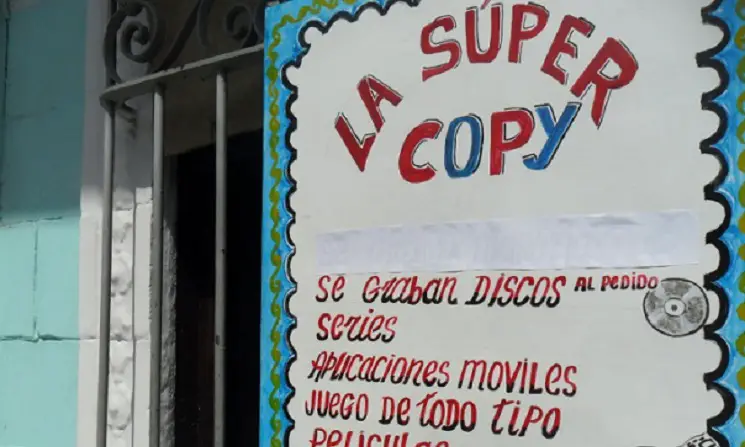 LA SÚPER
COPY
Se Graban DISCOS AL PEDIDO
Series
APLICACIONES MOVILES
JUEGO DE TODO TIPO
PELICULAS